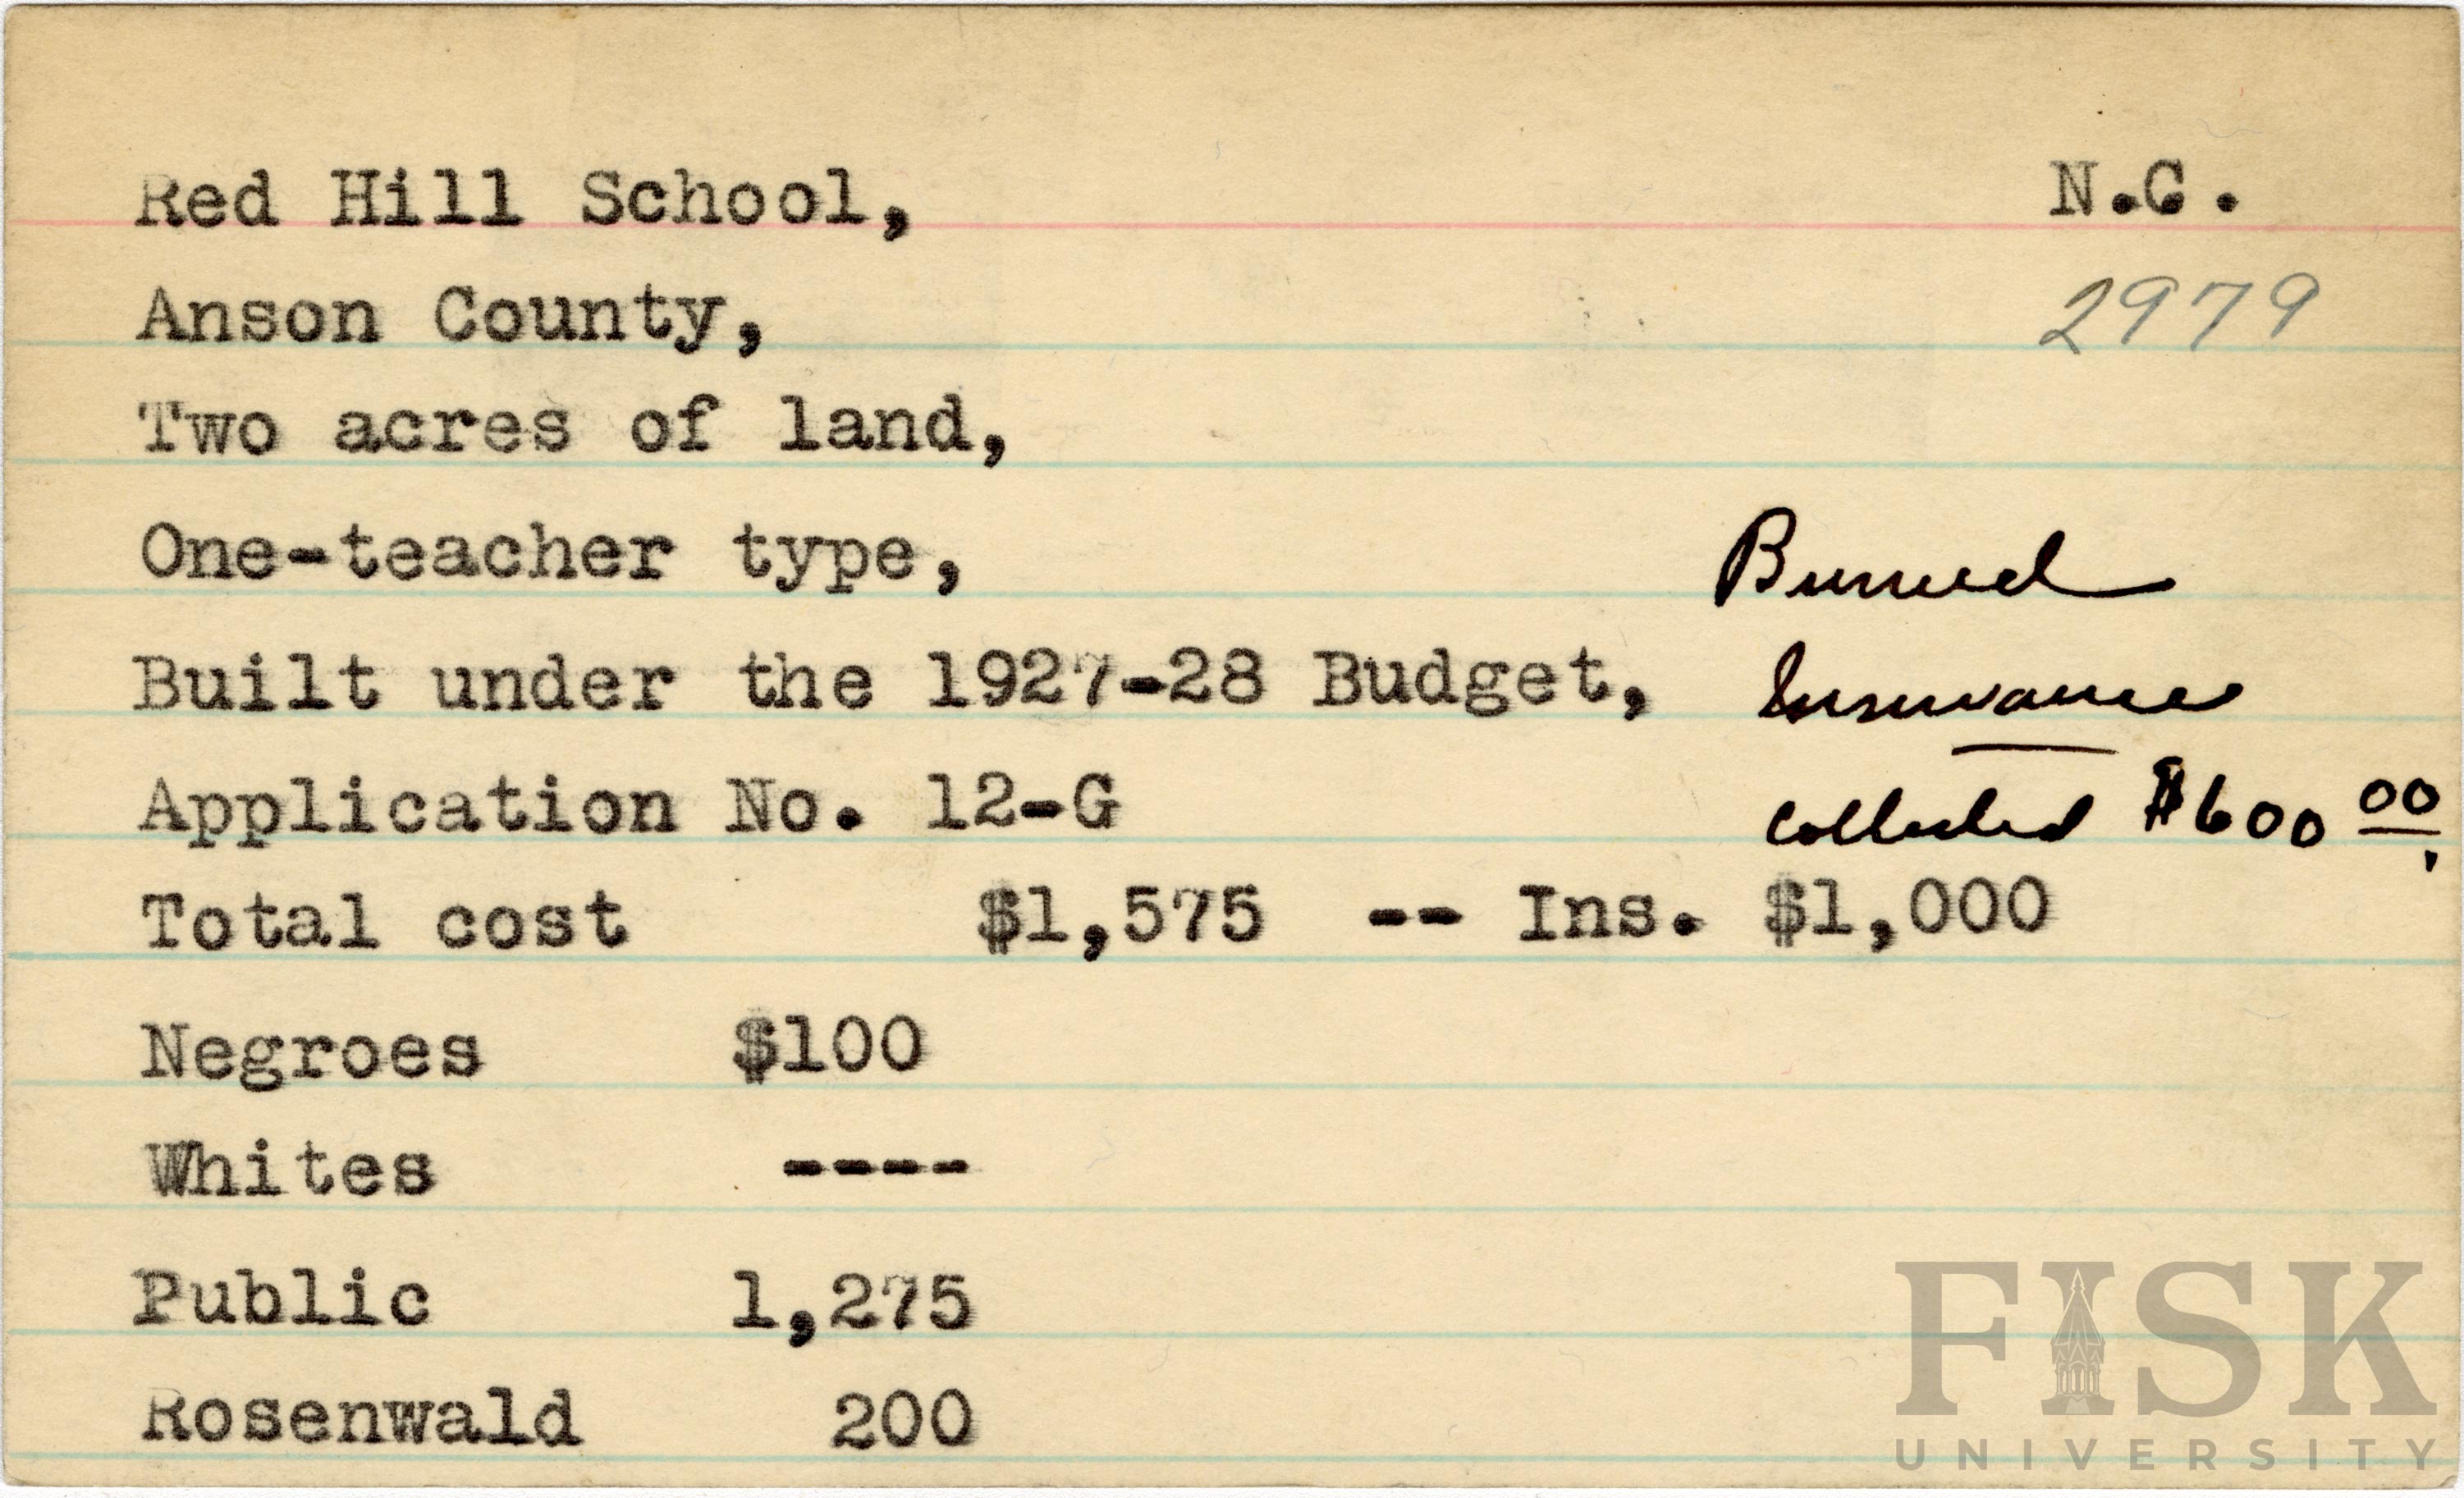 Red Hill School, N.C.
Anson County, 2979
Two acres of land,
One-teacher type, Burned
Built under the 1927-28 Budget, Insurance
Application No. 12-G collected $600 00.
Total cost $1,575 -- Ins. $1,000
Negroes $100
Whites ----
Public 1,275
Rosenwald 200
FISK
UNIVERSITY